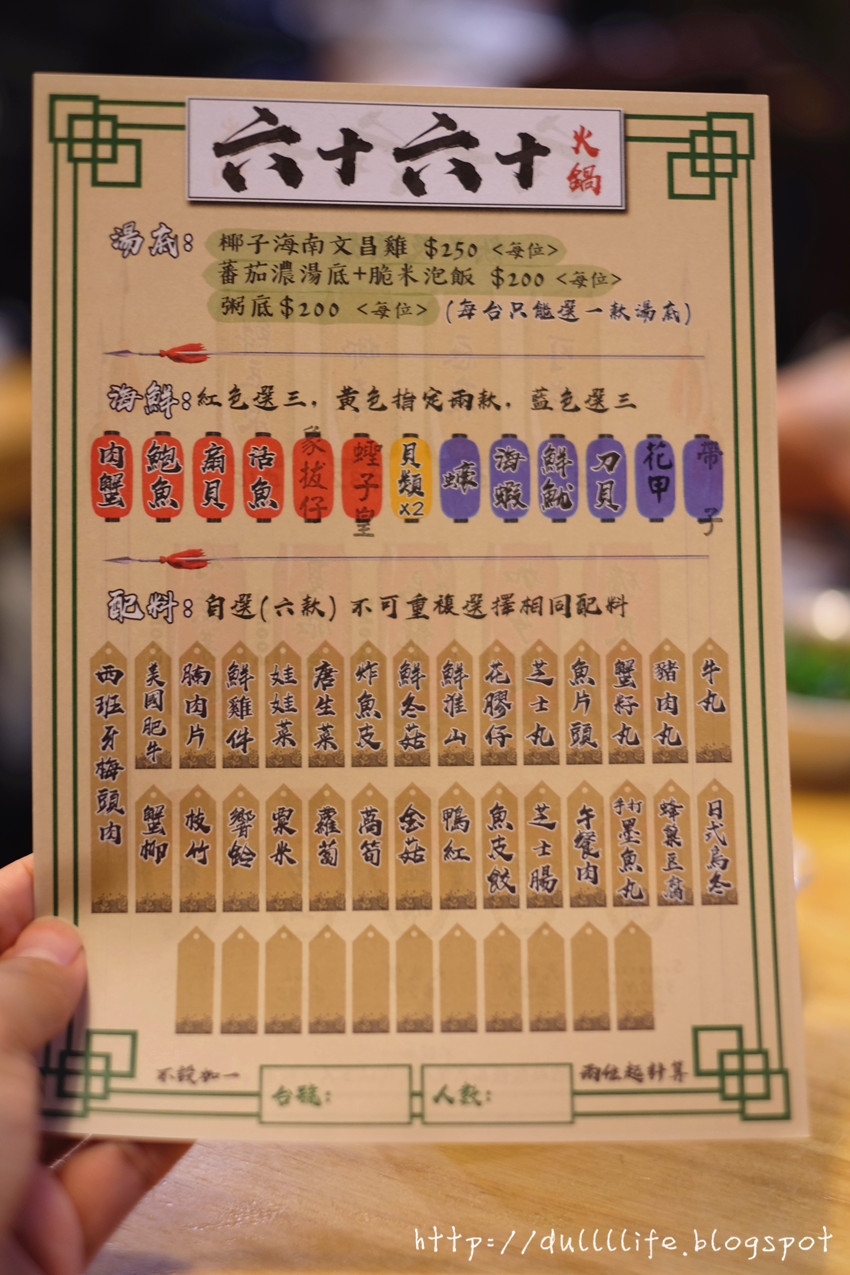 六十六十 火鍋
湯底: 椰子海南文昌雞 $250 <每位>
蕃茄濃湯底+脆米泡飯 $200 <每位>
粥底$200 <每位> (每台只能選一款湯底)
海鮮:紅色選三，黃色指定兩款，藍色選三
肉蟹
鮑魚
扇貝
活魚
象拔仔
蟶子皇
貝類x2
蠔
海蝦
鮮魷
刀貝
花甲
帶子
配料:自選(六款)不可重複選擇相同配料
西班牙梅頭肉
美國肥牛
腩肉片
鮮雞件
娃娃菜
唐生菜
炸魚皮
鮮冬菇
鮮淮山
花膠仔
芝士丸
魚片頭
蟹籽丸
豬肉丸
牛丸
蟹柳
枝竹
響鈴
粟米
蘿蔔
萵筍
金菇
鴨紅
魚皮餃
芝士腸
午餐肉
手打墨魚丸
蜂巢豆腐
日式烏冬
不設加一
台號:
人數:
兩位起計算
http://dullllife.blogspot